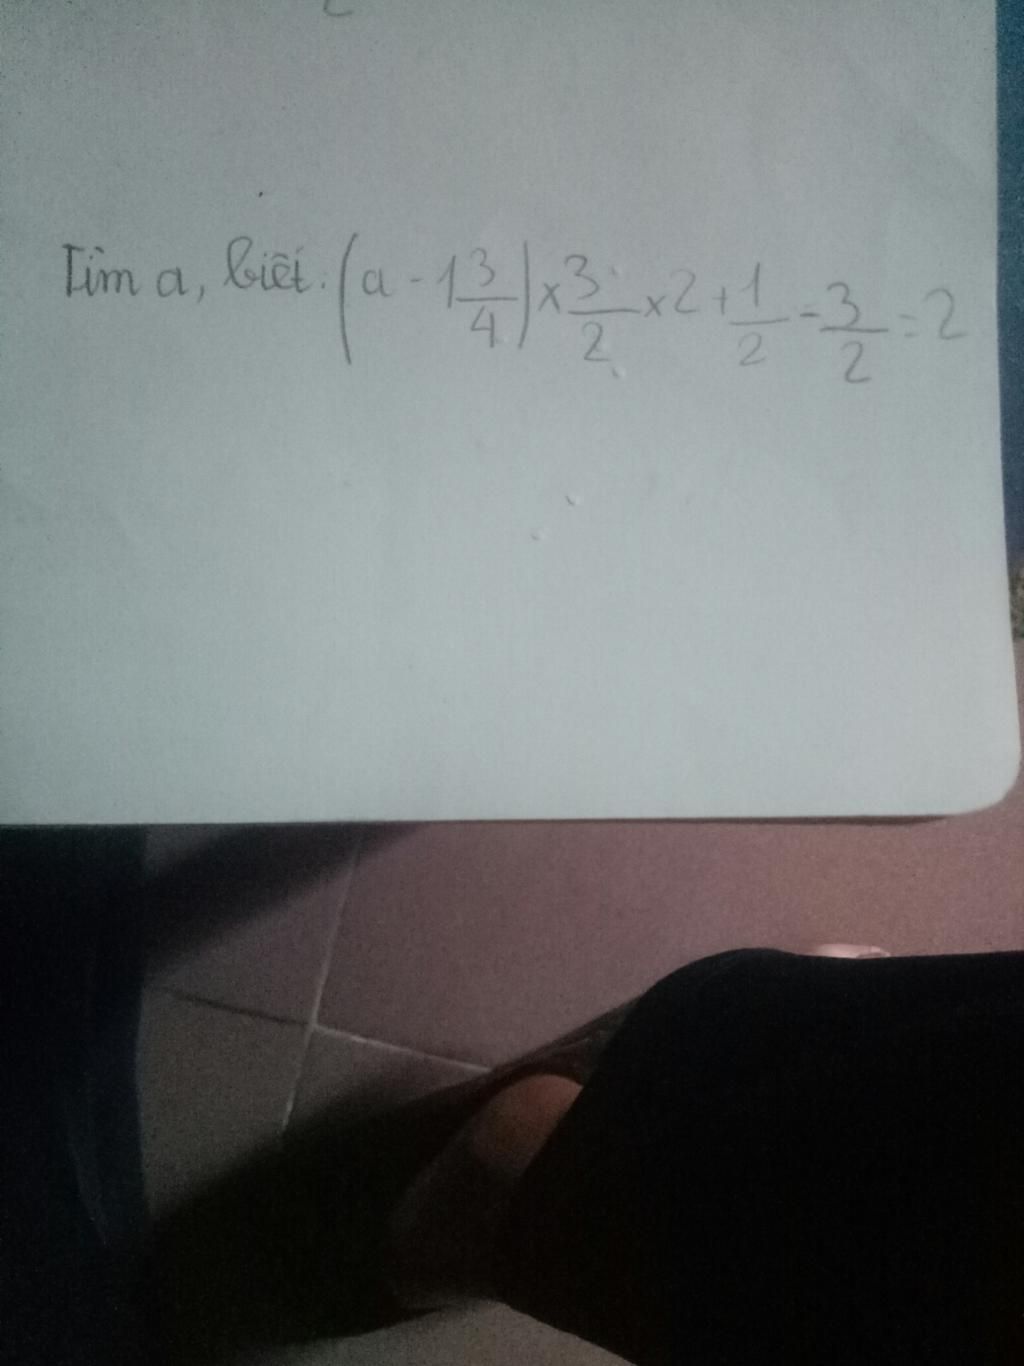 Tìm a, biết: (a - 1 3/4) x 3/2 x 2 + 1/2 - 3/2 = 2